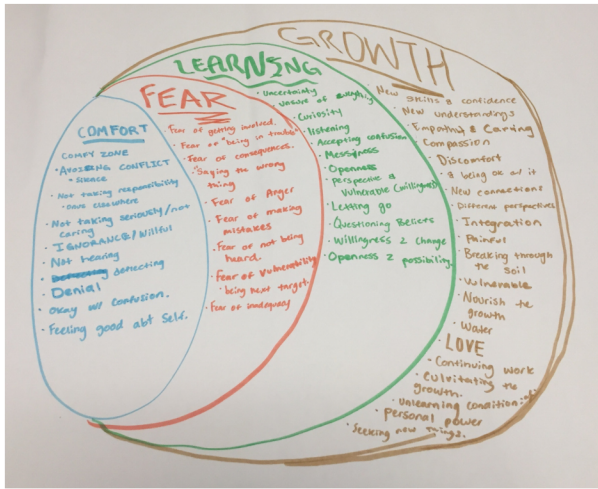 GROWTH
LEARNING
FEAR
COMFORT
COMFY ZONE
• AVOIDING CONFLICT
• SILENCE
• Not taking responsibility
• Not taking seriously/not
caring
• IGNORANCE/Willful
• Not hearing
deflecting
• Denial
• Okay w/ confusion.
• Feeling good abt self.
• Fear of getting involved.
• Fear of "being in trouble"
• Fear of consequences.
• "Saying the wrong
thing
• Fear of Anger
• Fear of making
mistakes
• Fear of not being
heard.
• Fear of Vulnerability
• being next target.
• Fear of inadequacy
• Uncertainty
• unsure of everything
• Curiosity
• listening
• Accepting confusion
• Messiness
• Openness
• perspective &
Vulnerable (willingness)
• Letting go
• Questioning Beliefs
• Willingness 2 change
• Openness 2 possibility.
• New skills & confidence
• New understandings
• Empathy & Caring
• Compassion
• Discomfort
& being ok w/ it
• New connections
• Different perspectives
• Integration
• Painful
• Breaking through
the soil
• Vulnerable
• Nourish the
growth
• Water
• LOVE
• Continuing work
• Culvitating the
growth.
• unlearning
• personal power
• Seeking new things.